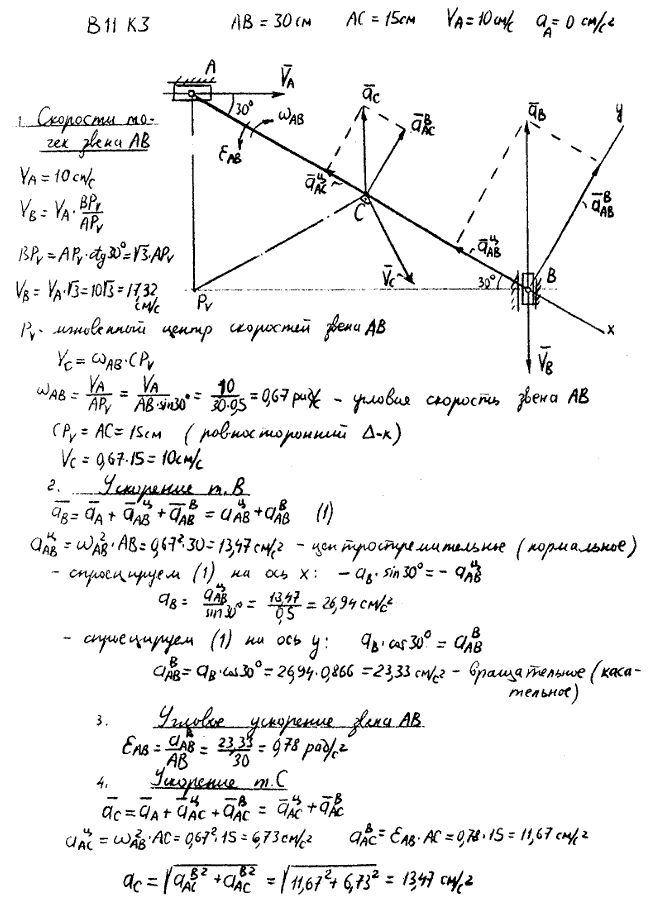 В11 К3 AB = 30 см AC = 15 см V_A = 10 см/с a_A = 0 см/с²
A
V̄_A
30°
ω_AB
ε_AB
ā_C
ā^B_AC
ā^ц_AC
C
V̄_C
ā_B
y
ā^B_AB
ā^ц_AB
30°
B
x
V̄_B
P_V
1. Скорости то-
чек звена АВ
V_A = 10 см/с
V_B = V_A · BP_V/AP_V
BP_V = AP_V · ctg30° = √3 · AP_V
V_B = V_A · √3 = 10√3 = 17,32 см/с
P_V - мгновенный центр скоростей звена АВ
V_C = ω_AB · CP_V
ω_AB = V_A/AP_V = V_A/(AB·sin30°) = 10/(30·0,5) = 0,67 рад/с – угловая скорость звена АВ
CP_V = AC = 15 см (равносторонний Δ-к)
V_C = 0,67·15 = 10 см/с
2. Ускорение т. В
ā_B = ā_A + ā^ц_AB + ā^B_AB = ā^ц_AB + ā^B_AB (1)
a^ц_AB = ω²_AB · AB = 0,67²·30 = 13,47 см/с² – центростремительное (нормальное)
- спроецируем (1) на ось x: -a_B · sin30° = -a^ц_AB
a_B = a^ц_AB/sin30° = 13,47/0,5 = 26,94 см/с²
- спроецируем (1) на ось y: a_B · cos30° = a^B_AB
a^B_AB = a_B · cos30° = 26,94 · 0,866 = 23,33 см/с² – вращательное (каса-
тельное)
3. Угловое ускорение звена АВ
ε_AB = a^B_AB/AB = 23,33/30 = 0,78 рад/с²
4. Ускорение т. С
ā_C = ā_A + ā^ц_AC + ā^B_AC = ā^ц_AC + ā^B_AC
a^ц_AC = ω²_AB · AC = 0,67²·15 = 6,73 см/с² a^B_AC = ε_AB · AC = 0,78 · 15 = 11,67 см/с²
a_C = √(a^B_AC² + a^B_AC²) = √(11,67² + 6,73²) = 13,47 см/с²